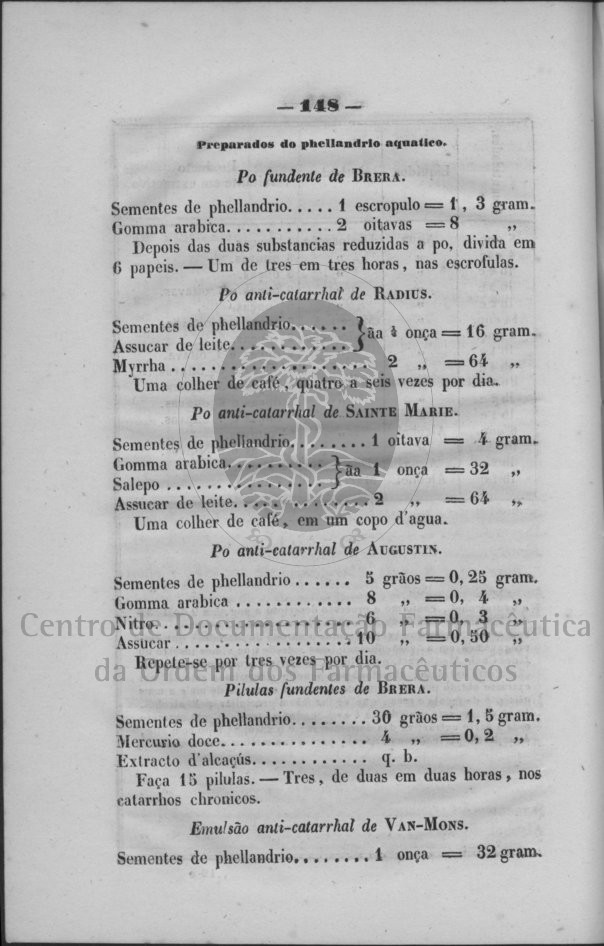 — 148 —
Preparados do phellandrio aquatico.
Po fundente de BRERA.
Sementes de phellandrio..... 1 escropulo = 1, 3 gram.
Gomma arabica........... 2 oitavas = 8 „
Depois das duas substancias reduzidas a po, divida em
6 papeis. — Um de tres em tres horas, nas escrofulas.
Po anti-catarrhal de RADIUS.
Sementes de phellandrio......
Assucar de leite............. } ãa ½ onça = 16 gram.
Myrrha.................... 2 „ = 64 „
Uma colher de café, quatro a seis vezes por dia.
Po anti-catarrhal de SAINTE MARIE.
Sementes de phellandrio........ 1 oitava = 4 gram.
Gomma arabica..........
Salepo................. } ãa 1 onça = 32 „
Assucar de leite.............. 2 „ = 64 „
Uma colher de café, em um copo d'agua.
Po anti-catarrhal de AUGUSTIN.
Sementes de phellandrio...... 5 grãos = 0, 25 gram.
Gomma arabica............ 8 „ = 0, 4 „
Nitro.................... 6 „ = 0, 3 „
Assucar.................. 10 „ = 0, 50 „
Repete-se por tres vezes por dia.
Pilulas fundentes de BRERA.
Sementes de phellandrio........ 30 grãos = 1, 5 gram.
Mercurio doce.............. 4 „ = 0, 2 „
Extracto d'alcaçús............ q. b.
Faça 15 pilulas. — Tres, de duas em duas horas, nos
catarrhos chronicos.
Emulsão anti-catarrhal de VAN-MONS.
Sementes de phellandrio........ 1 onça = 32 gram.
Centro de Documentação Farmacêutica
da Ordem dos Farmacêuticos